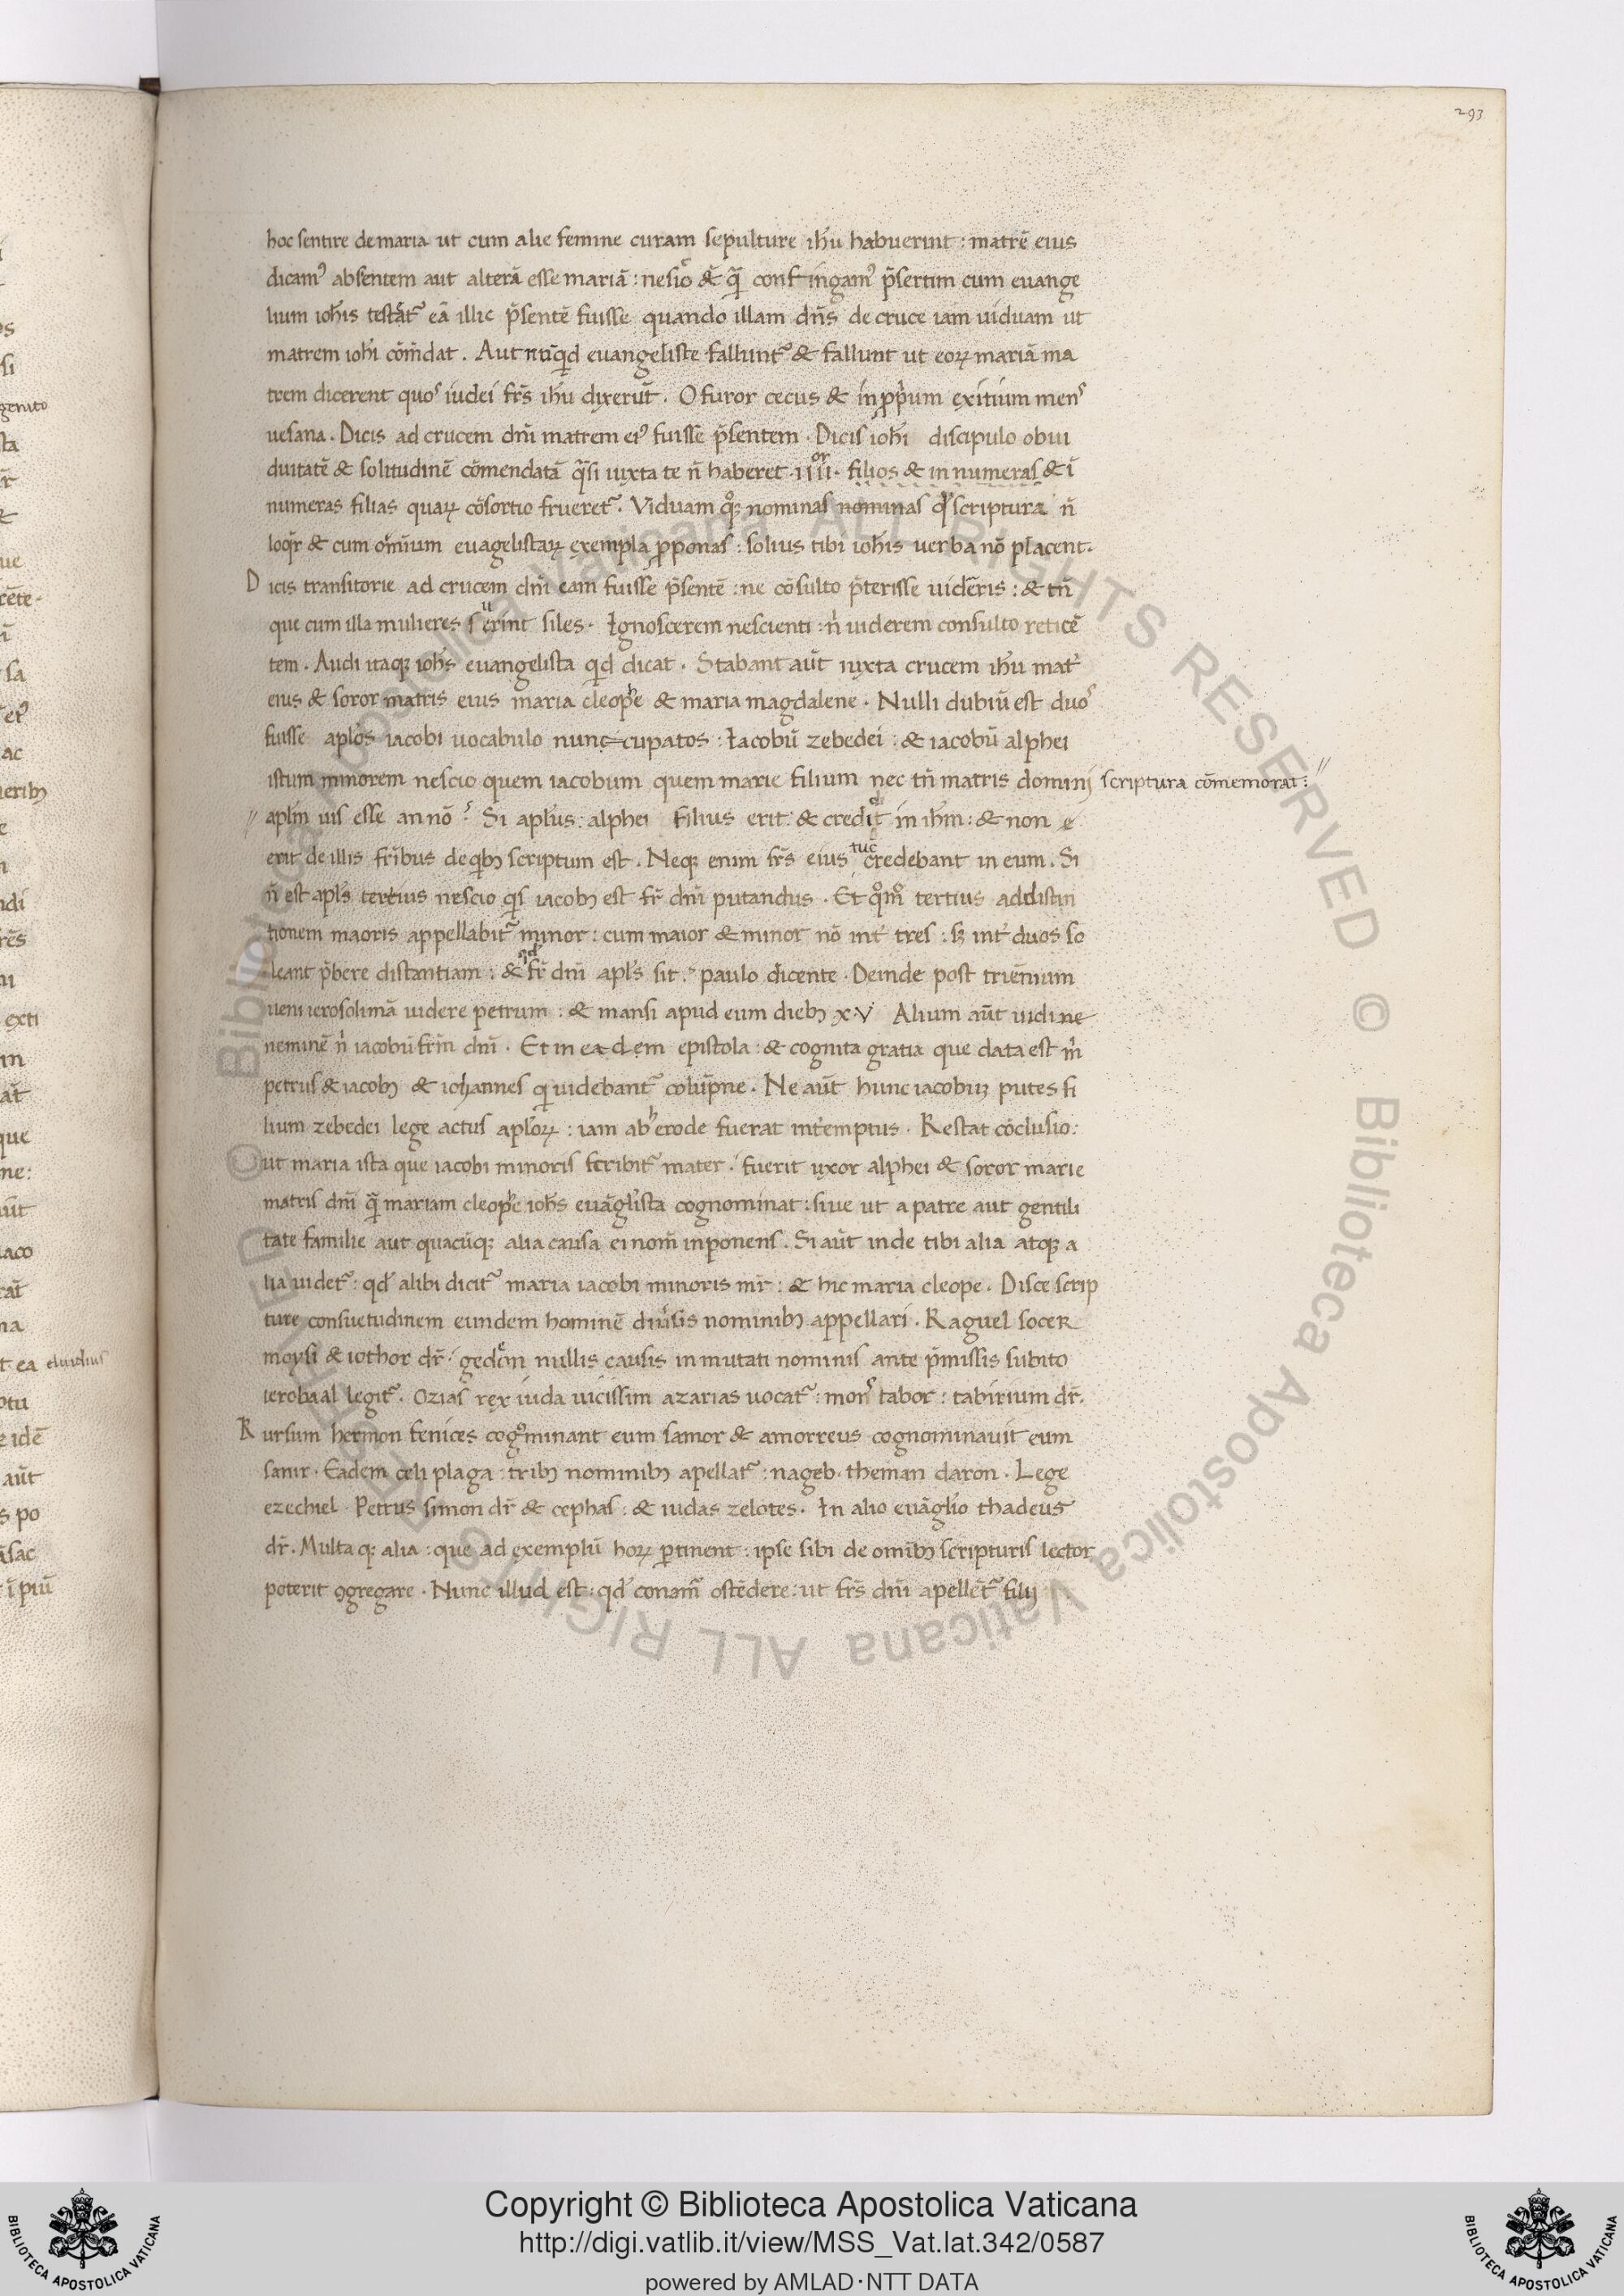 293
hoc sentire de maria ut cum alie femine curam sepulture ihu habuerint : matrē eius
dicam᾿ absentem aut alterā esse mariā : nesio & q̄ confingam᾿ p̄sertim cum euange
lium iohis testāt᾿ eā illic p̄sentē fuisse quando illam dn̄s de cruce iam uiduam ut
matrem iohi cōm̄dat . Aut nūqd euangeliste fallunt᾿ & fallunt ut eoꝝ mariā ma
trem dicerent quos iudei frs̄ ihu dixerūt . O furor cecus & in pprium exitium mens
uesana . Dicis ad crucem dm̄i matrem ei᾿ fuisse p̄sentem . Dicis iohi discipulo obui
duitatē & solitudinē cōmendatā q̄si iuxta te n̄ haberet iiii or . filios & in numeras & ī
numeras filias quaꝝ cōsortio frueret᾿ . Viduam qoꝫ nominas nominas qd scriptura n̄
loqr̄ & cum om̄ium euagelistaꝝ exempla pponas : solius tibi iohis uerba nō placent .
Dicis transitorie ad crucem dm̄i eam fuisse p̄sentē : ne cōsulto p̄terisse uideris : & tn̄
que cum illa mulieres f u erint siles . Ignoscerem nescienti : n̄ uiderem consulto reticē
tem . Audi itaqꝫ iohs euangelista qd dicat . Stabant aūt iuxta crucem ihu mat᾿
eius & soror matris eius maria cleophe & maria magdalene . Nulli dubiū est duos
fuisse aplos iacobi uocabulo nunc cupatos : Iacobū zebedei : & iacobū alphei
istum minorem nescio quem iacobum quem marie filium nec tn̄ matris domini scriptura cōmemorat : //
// aplm uis esse an nō ? Si aplus : alphei filius erit : & credit in ihm : & non e
erit de illis fribus de qibꝫ scriptum est . Neqꝫ enim frs̄ eius tūc credebant in eum . Si
n̄ est apls tertius nescio qis iacobꝫ est fr̄ dm̄i putandus . Et qomo tertius ad distin
tionem maoris appellabit᾿ minor : cum maior & minor nō int᾿ tres : sꝫ int᾿ duos so
leant p̄bere distantiam : & qd fr̄ dm̄i apls sit . paulo dicente . Deinde post triēnium
ueni ierosolimā uidere petrum : & mansi apud eum diebꝫ xv Alium aūt uidi ne
neminē n̄ iacobū frm̄ dm̄i . Et in eadem epistola : & cognita gratia que data est m̄
petrus & iacobꝫ & iohannes qi uidebant᾿ colūpne . Ne aūt hunc iacobuꝫ putes fi
lium zebedei lege actus aploꝝ : iam ab herode fuerat int᾿emptus . Restat cōclusio :
ut maria ista que iacobi minoris scribit᾿ mater . fuerit uxor alphei & soror marie
matris dm̄i q̄ mariam cleophe iohs euāglista cognominat : siue ut a patre aut gentili
tate familie aut quacūqꝫ alia causa ei nom̄ inponens . Si aūt inde tibi alia atqꝫ a
lia uidet᾿ : qd alibi dicit᾿ maria iacobi minoris mr̄ : & hic maria cleope . Disce scrip
ture consuetudinem eundem hominē diu᾿sis nominibꝫ appellari . Raguel socer
moysi & iothor dr̄ . gedeōn nullis causis inmutati nominis ante p̄missis subito
ierobaal legit᾿ . ozias rex iuda uicissim azarias uocat᾿ : mons tabor : tabirium dr̄ .
Rursum hermon fenices cognominant eum samor & amorreus cognominauit eum
sanir . Eadem celi plaga : tribꝫ nominibꝫ apellat᾿ : nageb . theman daron . Lege
ezechiel . Petrus simon dr̄ & cephas : & iudas zelotes . In alio euāglio thadeus
dr̄ . Multa qꝫ alia : que ad exemplū hoꝝ ptinent : ipse sibi de omībꝫ scripturis lector
poterit ꝯgregare . Nunc illud est : qd conam᾿ ostēdere : ut frs̄ dm̄i apellēt᾿ filij
Copyright © Biblioteca Apostolica Vaticana
http://digi.vatlib.it/view/MSS_Vat.lat.342/0587
powered by AMLAD·NTT DATA